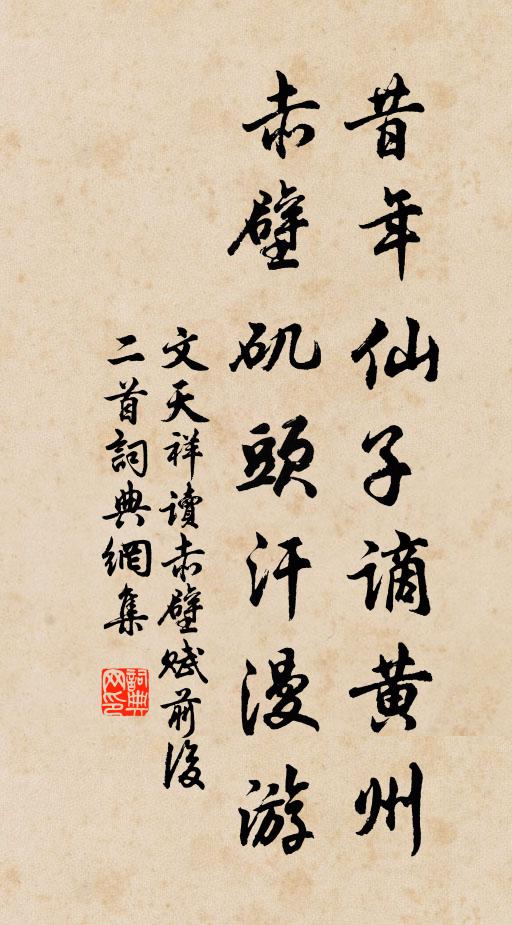 昔年仙子谪黄州
赤壁矶頭汗漫游
文天祥讀赤壁赋前後
二首詞典網集
詞典
网印